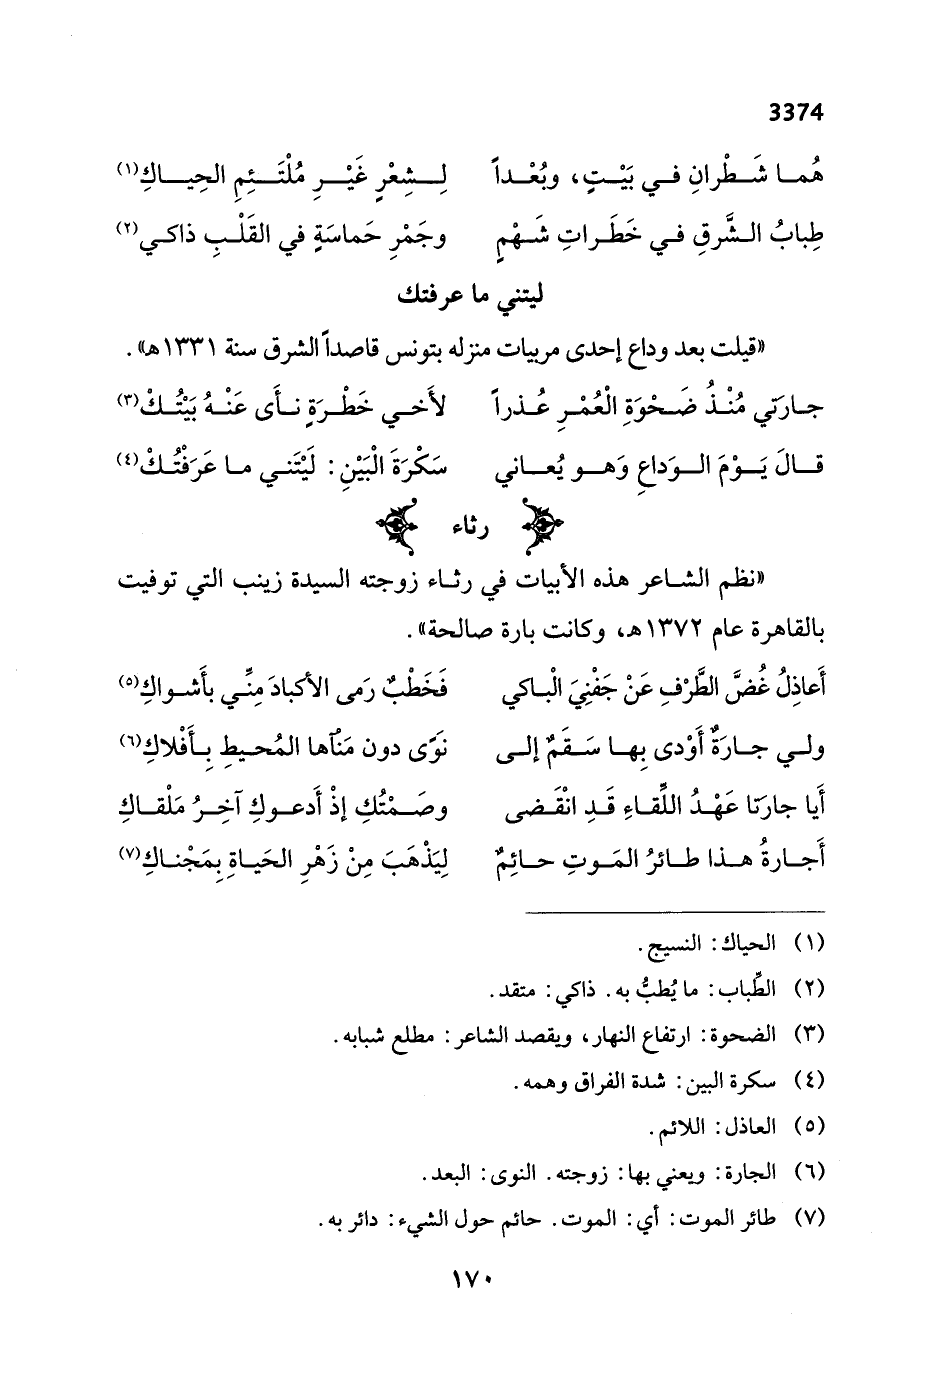 3374
هُما شَطْرانِ في بَيْتٍ، وبُعْداً لِشِعْرٍ غَيْرِ مُلْتَئِمِ الحِياكِ(١)
طِبابُ الشَّرقِ في خَطَراتِ شَهْمٍ وجَمْرِ حَماسَةٍ في القَلْبِ ذاكي(٢)
ليتني ما عرفتك
«قيلت بعد وداع إحدى مربيات منزله بتونس قاصداً الشرق سنة ١٣٣١هـ».
جارَتي مُنْذُ ضَحْوَةِ الْعُمْرِ عُذراً لأَخي خَطْرَةٍ نأَى عَنْهُ بَيْتُكْ(٣)
قالَ يَوْمَ الوَداعِ وَهو يُعاني سَكْرَةَ الْبَيْنِ: لَيْتَني ما عَرَفْتُكْ(٤)
رثاء
«نظم الشاعر هذه الأبيات في رثاء زوجته السيدة زينب التي توفيت
بالقاهرة عام ١٣٧٢هـ، وكانت بارة صالحة».
أَعاذِلُ غُضَّ الطَّرْفِ عَنْ جَفْنِيَ الْباكي فَخَطْبٌ رَمى الأكبادَ مِنِّي بأَشْواكِ(٥)
ولي جارَةٌ أَوْدى بِها سَقَمٌ إلى نَوًى دون مَنْآها المُحيطِ بِأَفْلاكِ(٦)
أَيا جارَتا عَهْدُ اللِّقاءِ قَدِ انْقَضى وصَمْتُكِ إذْ أَدعوكِ آخِرُ مَلْقاكِ
أَجارةُ هذا طائرُ المَوتِ حائِمٌ لِيَذْهَبَ مِنْ زَهْرِ الحَياةِ بِمَجْناكِ(٧)
(١) الحياك: النسيج.
(٢) الطِّباب: ما يُطبُّ به. ذاكي: متقد.
(٣) الضحوة: ارتفاع النهار، ويقصد الشاعر: مطلع شبابه.
(٤) سكرة البين: شدة الفراق وهمه.
(٥) العاذل: اللائم.
(٦) الجارة: ويعني بها: زوجته. النوى: البعد.
(٧) طائر الموت: أي: الموت. حائم حول الشيء: دائر به.
١٧٠